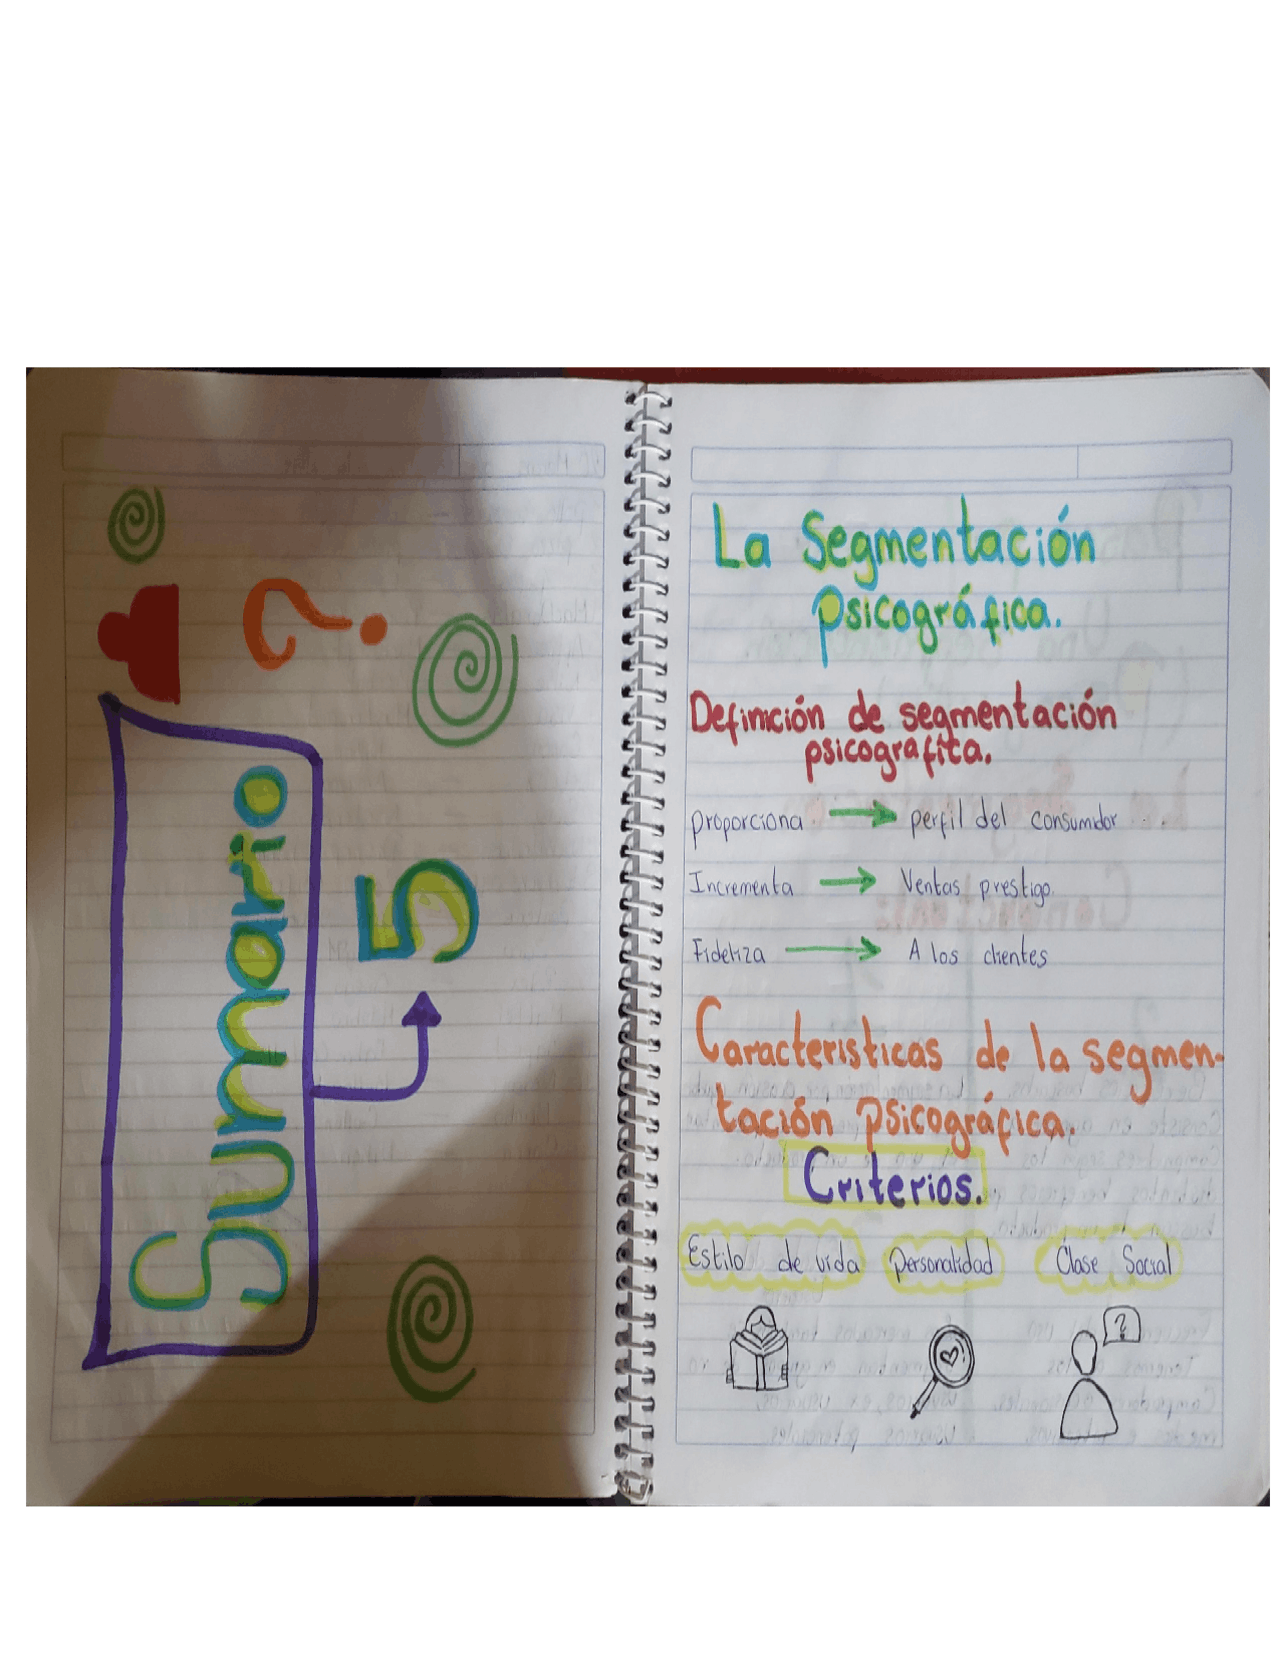 Sumario
5
?
La Segmentación
psicográfica.
Definición de segmentación
psicografíca.
proporciona → perfil del consumidor
Incrementa → Ventas prestigo.
Fideliza → A los clientes
Caracteristicas de la segmen-
tación psicográfica.
Criterios.
Estilo de vida personalidad Clase Social
?